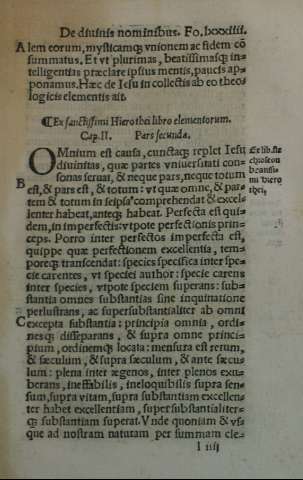 De diuinis nominibus. Fo. lxxxiiii.
A lem eorum, mysticamq; vnionem ac fidem cõ
summatus. Et vt plurimas, beatissimasq; in
telligentias præclare ipsius mentis, paucis ap-
ponamus. Hæc de Iesu in collectis ab eo theo
logicis elementis ait.
¶Ex sanctissimi Hierothei libro elementorum.
Cap. II. Pars secunda.
OMnium est causa, cunctaq; replet Iesu
diuinitas, quæ partes vniuersitati con-
sonas seruat, & neque pars, neque totum
B est, & pars est, & totum: vt quæ omne, & par-
tem & totum in seipsa comprehendat & excel-
lenter habeat, anteq; habeat. Perfecta est qui-
dem, in imperfectis: vtpote perfectionis prin-
ceps. Porro inter perfectos imperfecta est,
quippe quæ perfectionem excellentia, tem-
poreq; transcendat: species specifica inter spe-
cie carentes, vt speciei author: specie carens
inter species, vtpote speciem superans: sub-
stantia omnes substantias sine inquinatione
perlustrans, ac supersubstantialiter ab omni
C excepta substantia: principia omnia, ordi-
nesq; disseparans, & supra omne princi-
pium, ordinemq; locata: mensura est rerum,
& sæculum, & supra sæculum, & ante sæcu-
lum: plena inter ægenos, inter plenos exu-
berans, ineffabilis, ineloquibilis supra sen-
sum, supra vitam, supra substantiam excellen-
ter habet excellentiam, supersubstantialiter-
q; substantiam superat. Vnde quoniam & vs
que ad nostram naturam per summam cle-
l iiij
Ex lib. ele
beatissi
mi Hiero
thei.